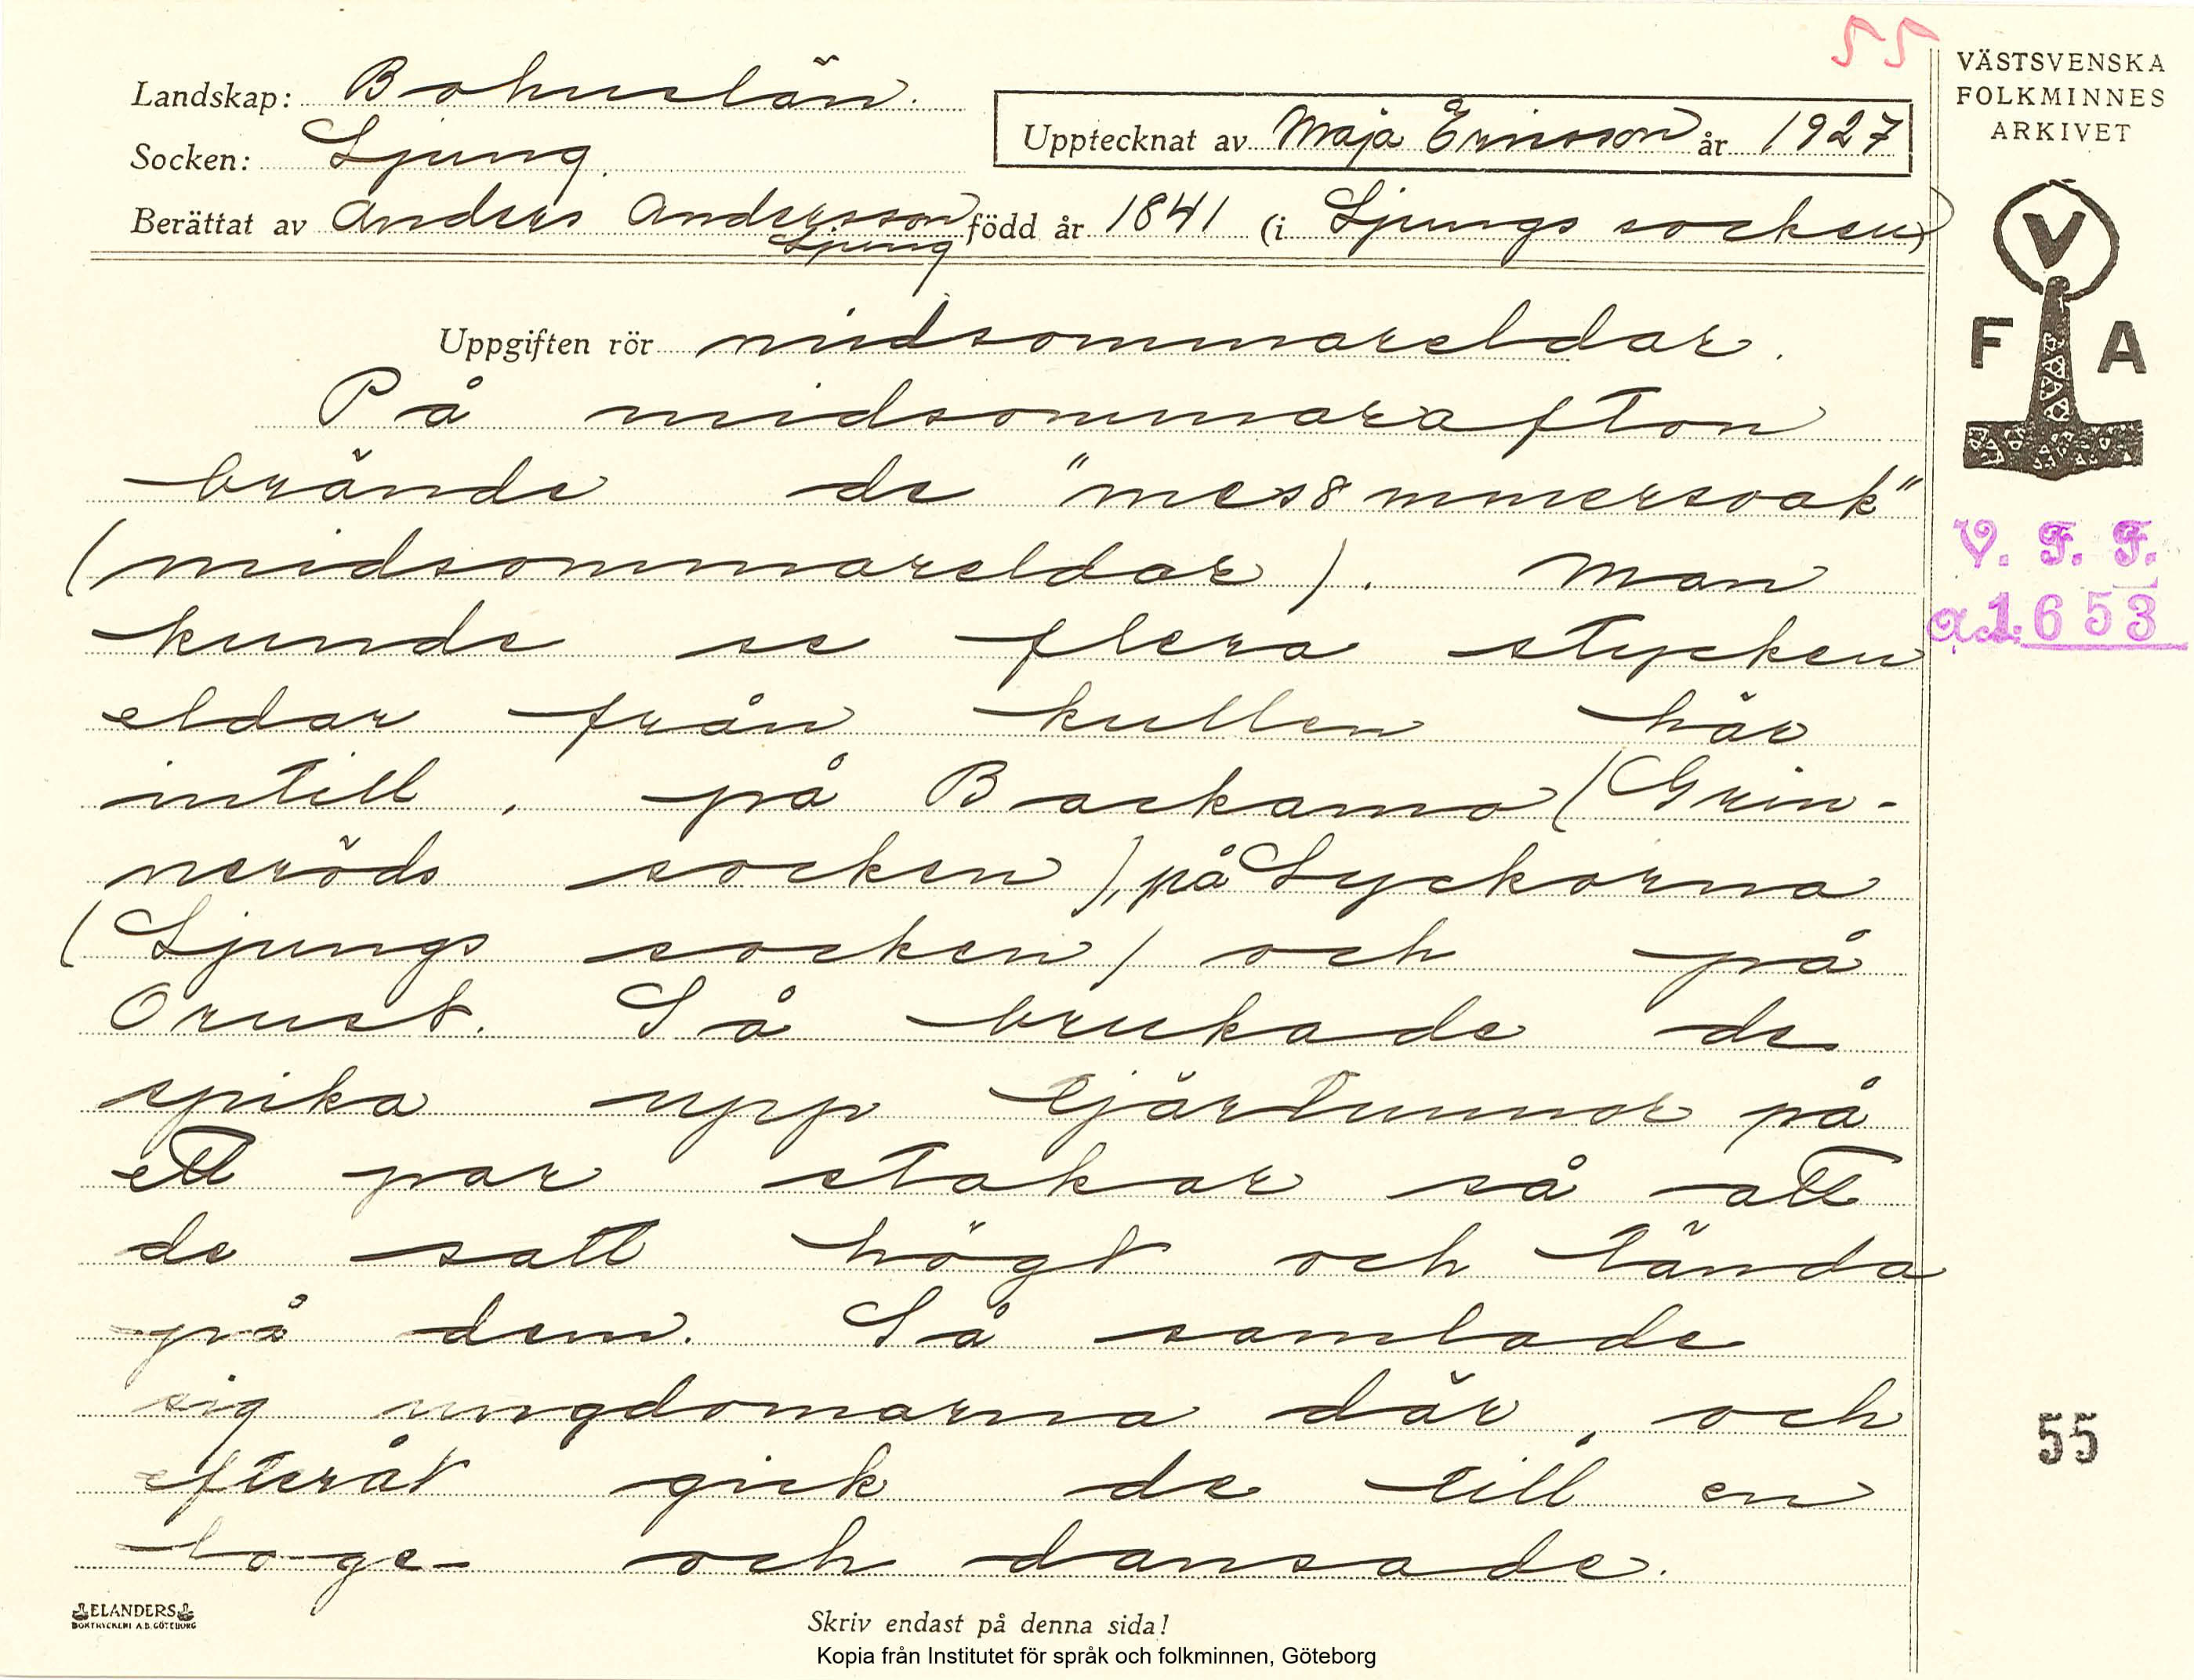 55
VÄSTSVENSKA
FOLKMINNES
ARKIVET
Landskap: Bohuslän.
Upptecknat av Maja Ericsson år 1927
Socken: Ljung.
Berättat av Anders Andersson född år 1841 (i Ljungs socken)
Ljung
V
F A
Uppgiften rör midsommareldar.
På midsommarafton
brände de "mes8mmersvak"
(midsommareldar). Man
kunde se flera stycken
eldar från kullen här
intill, på Backamo (Grin-
neröds socken), på Lyckorna
(Ljungs socken) och på
Orust. Så brukade de
spika upp tjärtunnor på
ett par stakar så att
de satt högt och tända
på dem. Så samlade
sig ungdomarna där, och
efteråt gick de till en
loge och dansade.
V. F. F.
acc. 1653
55
ELANDERS
BOKTRYCKERI A.B. GÖTEBORG
Skriv endast på denna sida!
Kopia från Institutet för språk och folkminnen, Göteborg